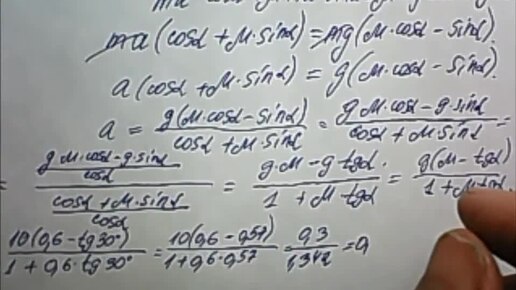 ma(cosα + M·sinα) = mg(M·cosα − sinα).
a(cosα + M·sinα) = g(M·cosα − sinα).
a = g(M·cosα − sinα) / cosα + M·sinα = gM·cosα − g·sinα / cosα + M·sinα =
= gM·cosα − g·sinα / cosα / cosα + M·sinα / cosα = g·M − g·tgα / 1 + M·tgα = g(M − tgα) / 1 + M·tgα
10(0,6 − tg30°) / 1 + 0,6·tg30° = 10(0,6 − 0,57) / 1 + 0,6·0,57 = 0,3 / 1,342 = 0,